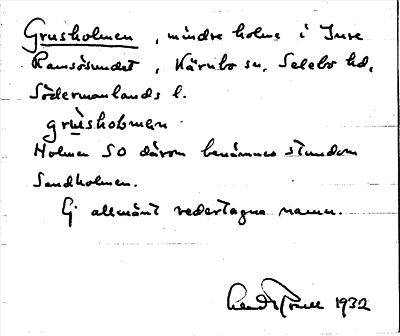 Grusholmen, mindre holme i Inre
Ramsösundet, Kärnbo sn, Selebo hd,
Södermanlands l.
grùsholmen.
Holmen SO därom benämnes stundom
Sandholmen.
Ej allmänt vedertagna namn.
1932